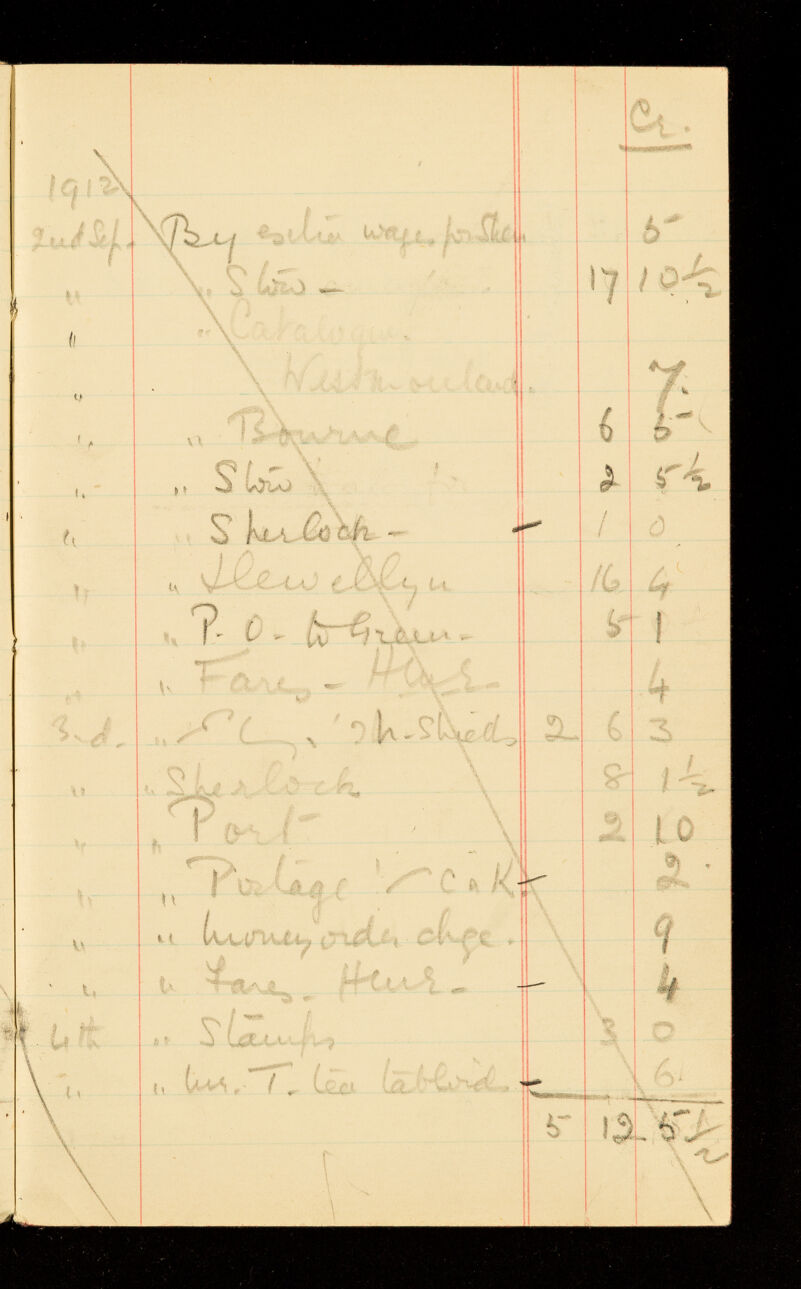 Cr.
1912
2nd Sep. By extra wages for 5
" " Stow - 17 10 1/2
" " Catalogue.
" Westmorland. 7.
" " Bourne 6 5
" " Stow 2 5 1/2
" " Sherlock - - 1 0
" " Llewellyn 16 4
" " P. O. - to Green - 5 1
" " Fares - 4
3rd. " N. Shields 2 6 3
" " Sherlock 8 1 1/2
" " Port 2 10
" " Postage - 2
" " money order chge. 9
" " Fares - - 4
4th " Stamps 3 0
" " Mr. T. tea tabloids - 6
5 12 5 1/2